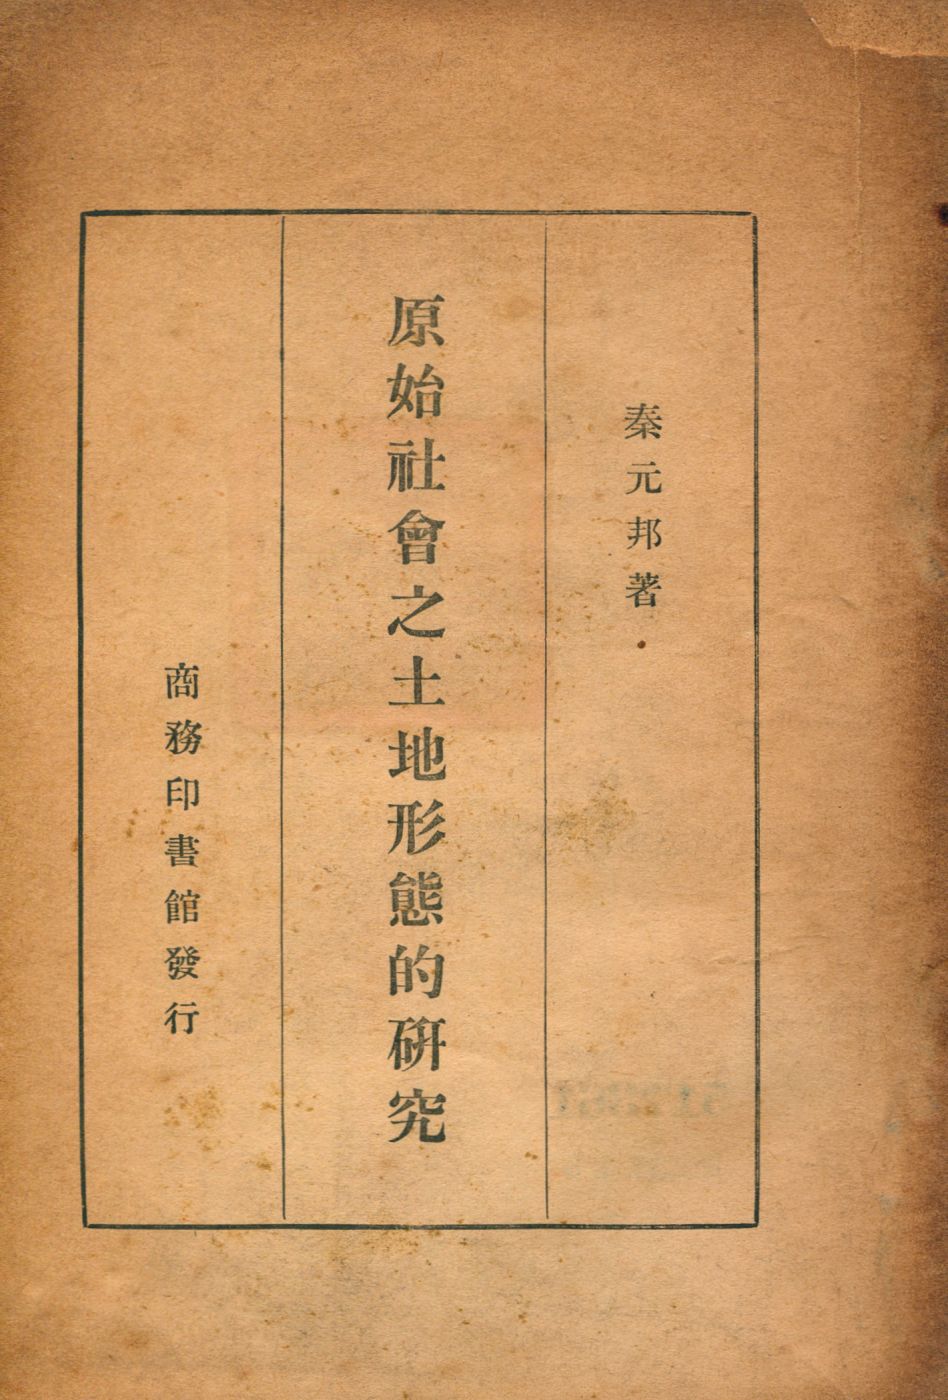 秦元邦著
原始社會之土地形態的硏究
商務印書館發行